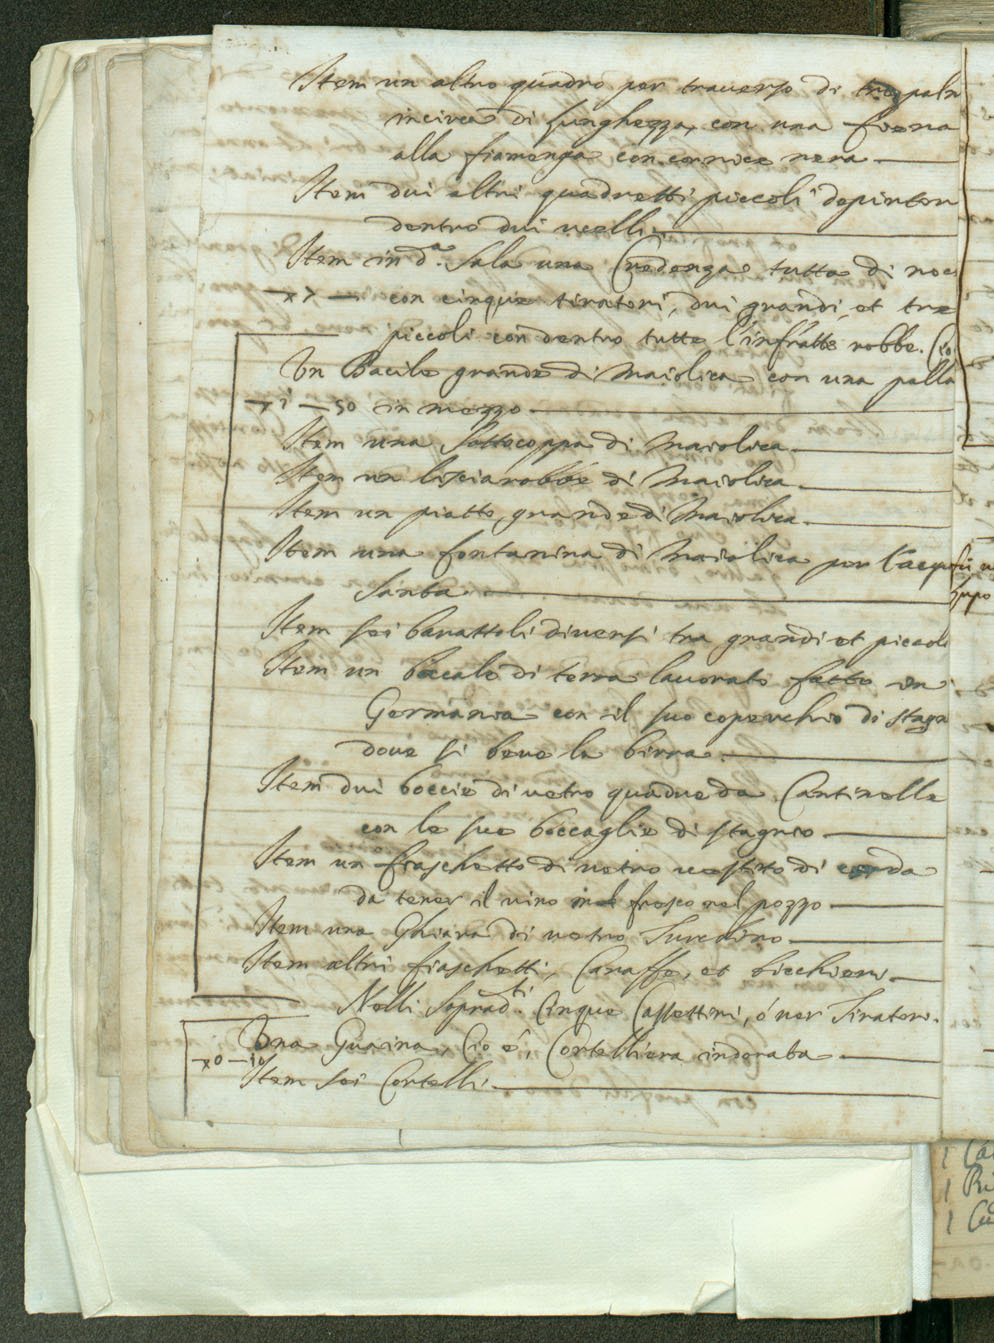 Item un altro quadro per trauerso di tre palm
incirca di lunghezza, con una fiera
alla fiamenga con cornice nera
Item dui altri quadretti piccoli depintoui
dentro dui ucelli
Item in d.ª Sala una Credenza tutta di noce
con cinque tiratori, dui grandi, et tre
piccoli con dentro tutte l'infratte robbe. Cio
Un Bacile grande di Maiolica con una palla
50 in mezzo
Item una Sottocoppa di Maiolica
Item un lisciarobbe di Maiolica
Item un piatto grande di Maiolica
Item una fontanina di Maiolica per l'acqua
Santa
Item sei barattoli diuersi tra grandi et piccoli
Item un boccale di terra lauorato fatto in
Germania con il suo coperchio di stagn
doue si beue la birra
Item dui boccie di uetro quadue da Cantinella
con le sue boccaglie di stagno
Item un fraschetto di uetro uestito di corda
da tener il uino in fresco nel pozzo
Item una Ghiara di uetro
Item altri fiaschetti, Caraffe, et bicchieri
Nelli soprad.ti Cinque Cassettini, ó uer Tiratori.
Una Guaina, Cio é, Cortelliera indorata
Item sei Cortelli